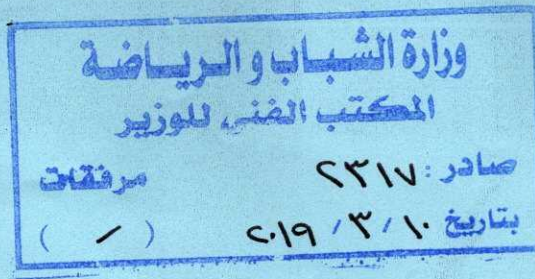 وزارة الشباب والرياضة
المكتب الفني للوزير
صادر : ٢٣١٧ مرفقات
بتاريخ ١٠ / ٣ / ٢٠١٩ ( / )